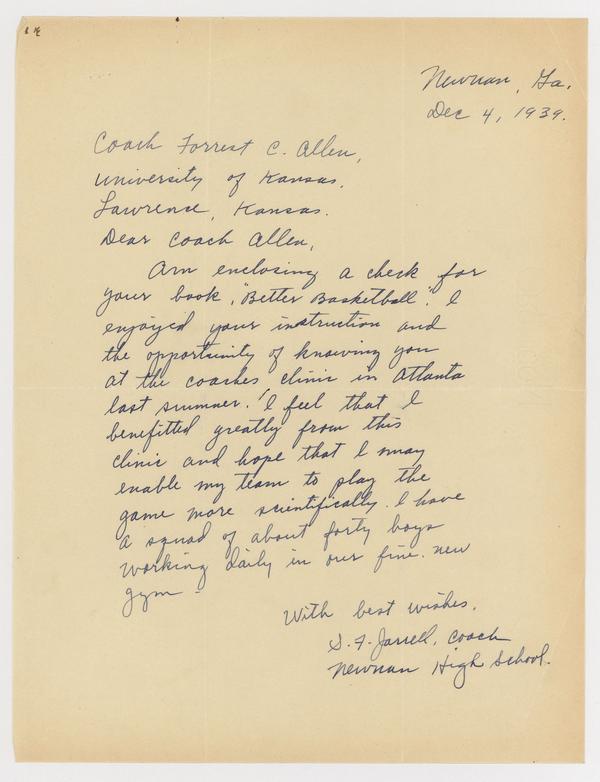 Newnan, Ga.
Dec 4, 1939.
Coach Forrest C. Allen,
University of Kansas,
Lawrense, Kansas.
Dear Coach Allen,
Am enclosing a check for
your book, "Better Basketball". I
enjoyed your instruction and
the opportunity of knowing you
at the coaches clinic in Atlanta
last summer. I feel that I
benefitted greatly from this
clinic and hope that I may
enable my team to play the
game more scientifically. I have
a squad of about forty boys
working daily in our fine new
gym.
With best wishes,
S. F. Jarrell, Coach
Newnan High School.